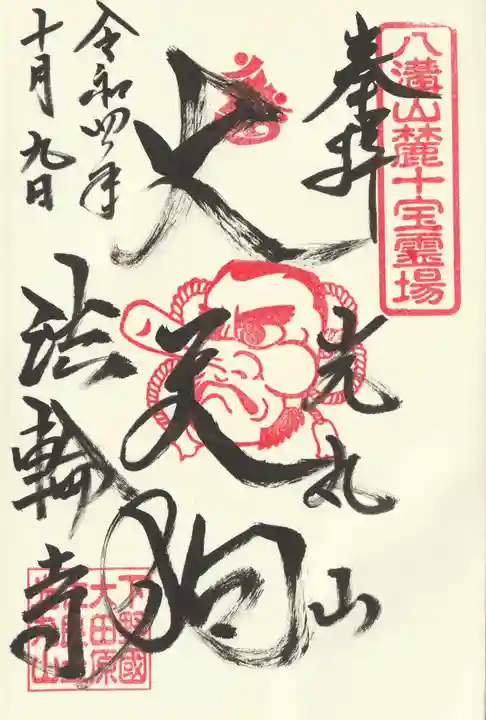 八溝山麓十宝霊場
奉拝
光丸山
大天狗
令和四年
十月九日
法輪寺
下野國
大田原